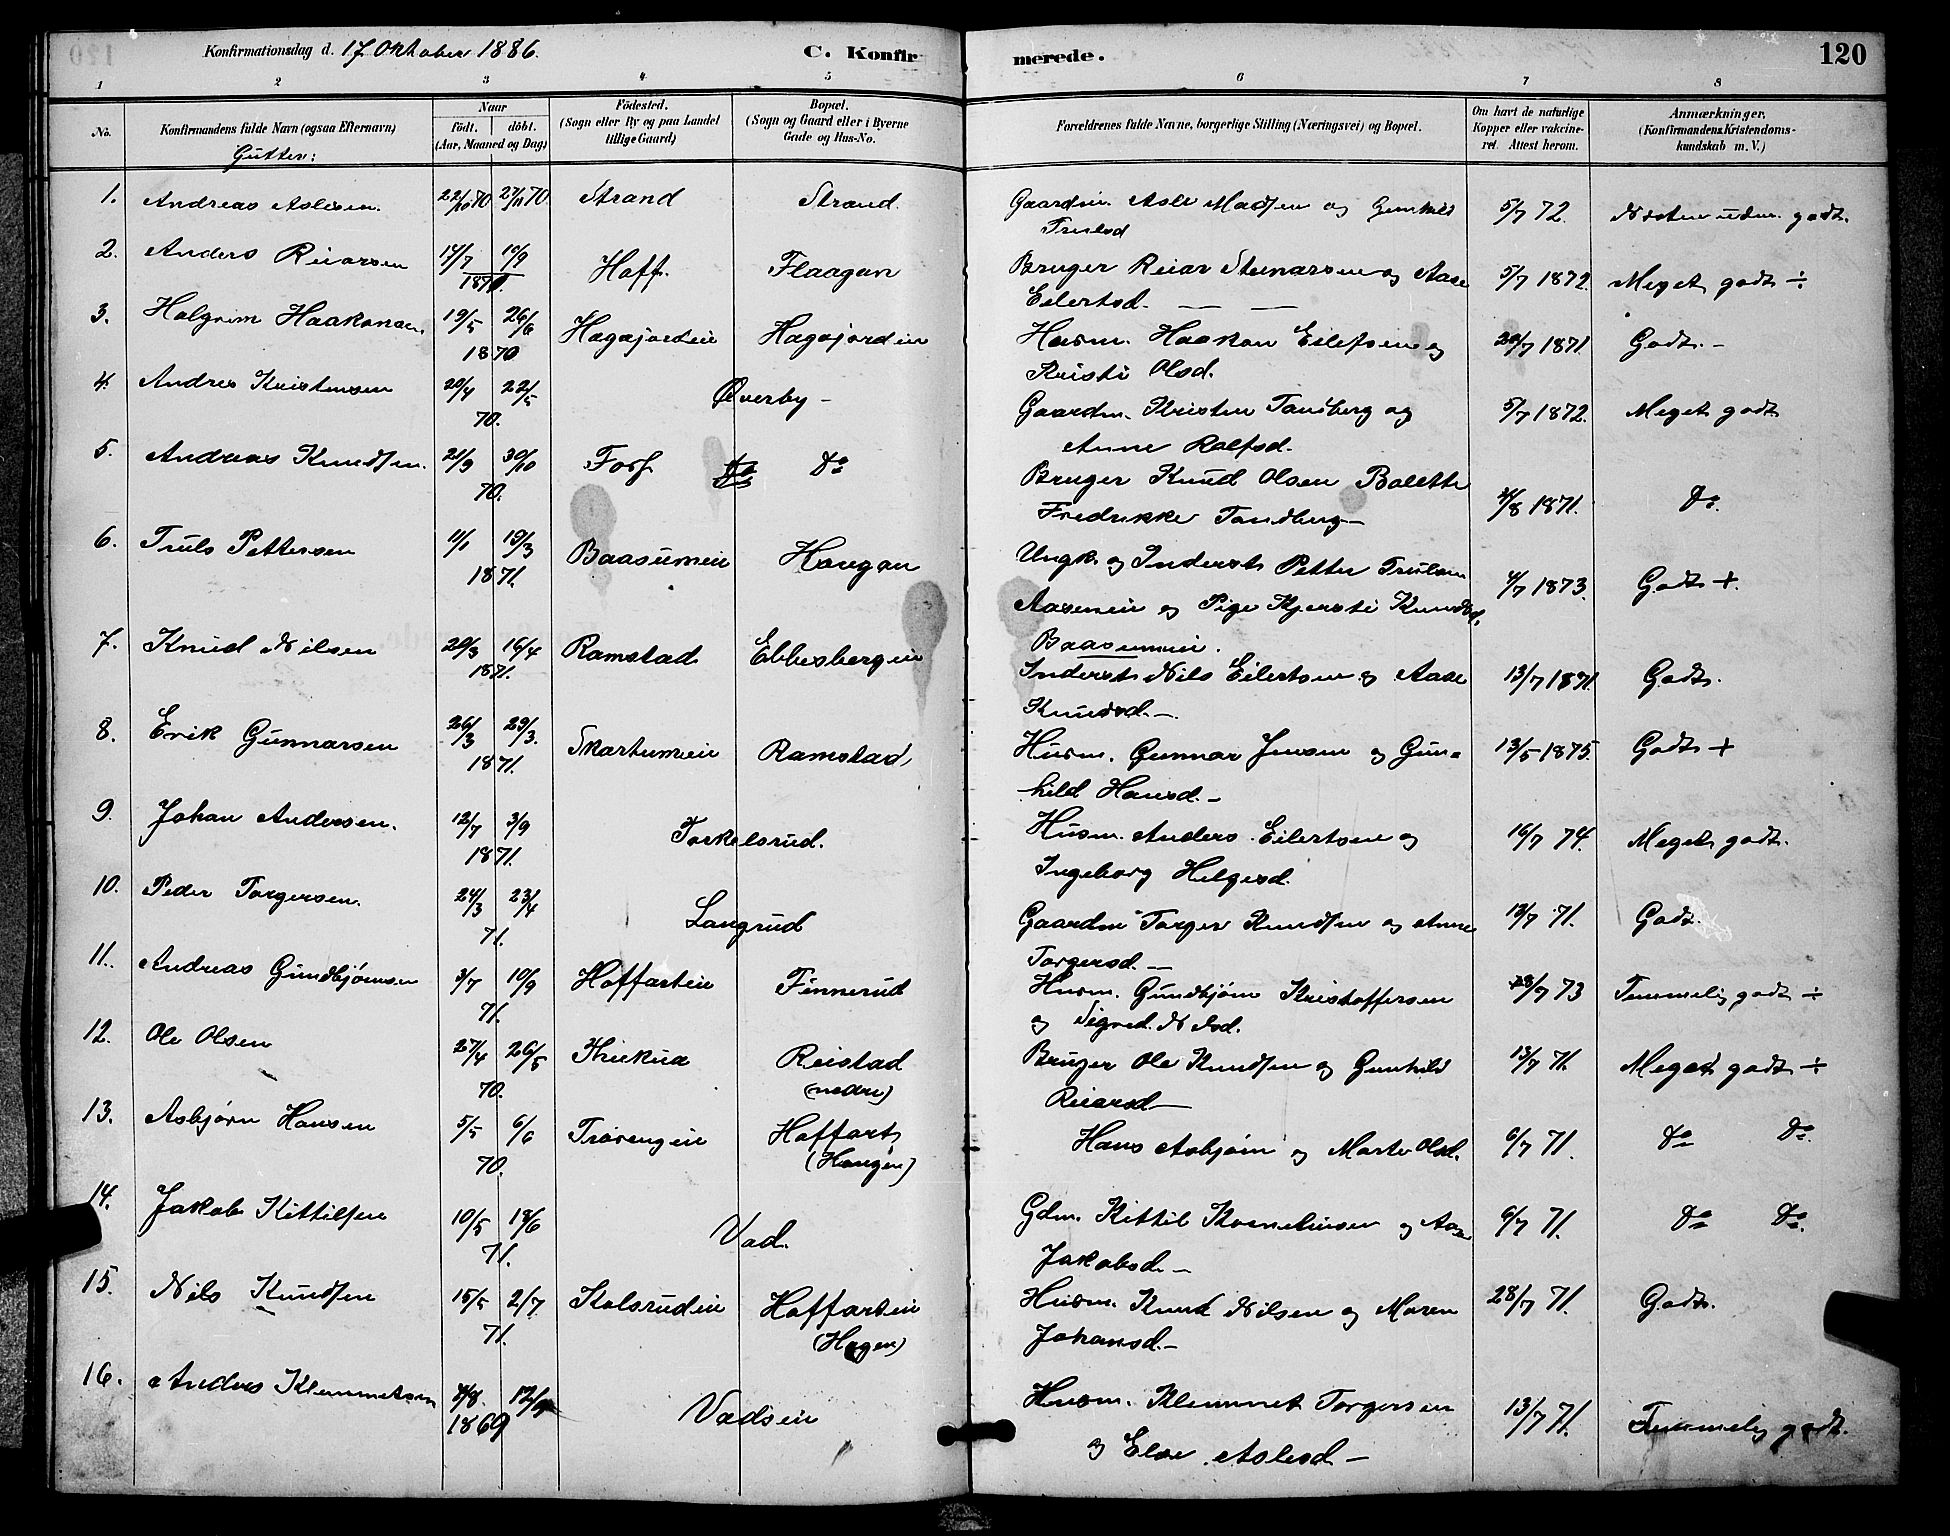 Konfirmationsdag d. 17 Oktober 1886.
C. Konfirmerede.
120
1 2 3 4 5 6 7 8
No.
Konfirmandens fulde Navn (ogsaa Efternavn)
Gutter:
Naar
födt. döbt.
(Aar, Maaned og Dag)
Födested.
(Sogn eller By og paa Landet
tillige Gaard)
Bopæl.
(Sogn og Gaard eller i Byerne
Gade og Hus-No.
Forældrenes fulde Navne, borgerlige Stilling (Næringsvei) og Bopæl.
Om havt de naturlige
Kopper eller vakcine-
ret. Attest herom.
Anmærkninger,
(Konfirmandens Kristendoms-
kundskab m. V.)
1. Andreas Aslesen. 22/10 70 27/11 70 Strand Strand. Gaardm. Asle Madsen og Gunhild 5/7 72. Næsten udm. godt.
Trulsd
2. Anders Reiarsen 17/7 Hoff. Flaagan Bruger Reiar Steinarsen og Aase 5/7 1872. Meget godt ÷
1870. Eilertsd. — —
3. Halgrim Haakonsen 19/5 26/6 Hagajordein Hagajordein Husm. Haakon Eilefsen og 20/7 1871. Godt. -
1870 Kristi Olsd.
4. Andres Kristensen 20/4 22/5 Øverby - Gaardm. Kristen Tandberg og 5/7 1872. Meget godt
70. Anne Rolfsd.
5. Andreas Knudsen. 21/9 30/10 Forf Do Do Bruger Knud Olsen Bolette /8 1871. Do.
70. Fredrikke Tandberg —
6. Truls Pettersen 11/1 19/3 Baasumein Haugan Ungk. og Inderst Petter Trulsen 4/7 1873. Godt +
1871. Aasenein og Pige Kjersti Knudsd.
Baasumein.
7. Knud Nilsen 20/3 16/4 Ramstad Ebbesbergein Inderst Nils Eilertsen og Aase 13/7 1871. Godt.
1871. Knudsd. —
8. Erik Gunnarsen 26/3 29/3. Skartumein Ramstad, Husm. Gunnar Jensen og Gun- 13/5 1875. Godt +
1871. hild Hansd. -
9. Johan Andersen. 12/7 3/9 Torkelsrud. Husm. Anders Eilertsen og 16/7 74. Meget godt.
1871. Ingeborg Helgesd.
10. Peder Torgersen. 24/3 23/4 Langrud Gaardm Torger Knudsen og Anne 13/7 71. Godt.
71. Torgersd. —
11. Andreas Gundbjørnsen 3/7 10/9 Hoffartein Finnerud Husm. Gundbjørn Kristoffersen /7 73 Temmelig godt ÷
71. og Sigrid Nilsd.
12. Ole Olsen 27/4 26/5 Reistad Bruger Ole Knudsen og Gunhild 13/7 71. Meget godt ÷
70. (nedre) Reiarsd —
13. Asbjørn Hansen 5/5 6/6 Trøsengein Hoffart Hans Asbjørn og Marte Olsd. 6/7 71. Do Do.
70. (Haugen)
14. Jakob Kittilsen 10/5 18/6 Vad. Gdm. Kittil Korneliusen og Aase 6/7 71. Do Do.
71. Jakobsd. —
15. Nils Knudsen 15/5 2/7 Kolsrudein Hoffartein Husm. Knut Nilsen og Maren 28/7 71. Godt.
71. (Hagen) Johansd. —
16. Anders Klemmetsen /8. 12/9 Vadsein Husm. Klemmet Torgersen 13/7 71. Temmelig godt.
1869 og Else Aslesd —